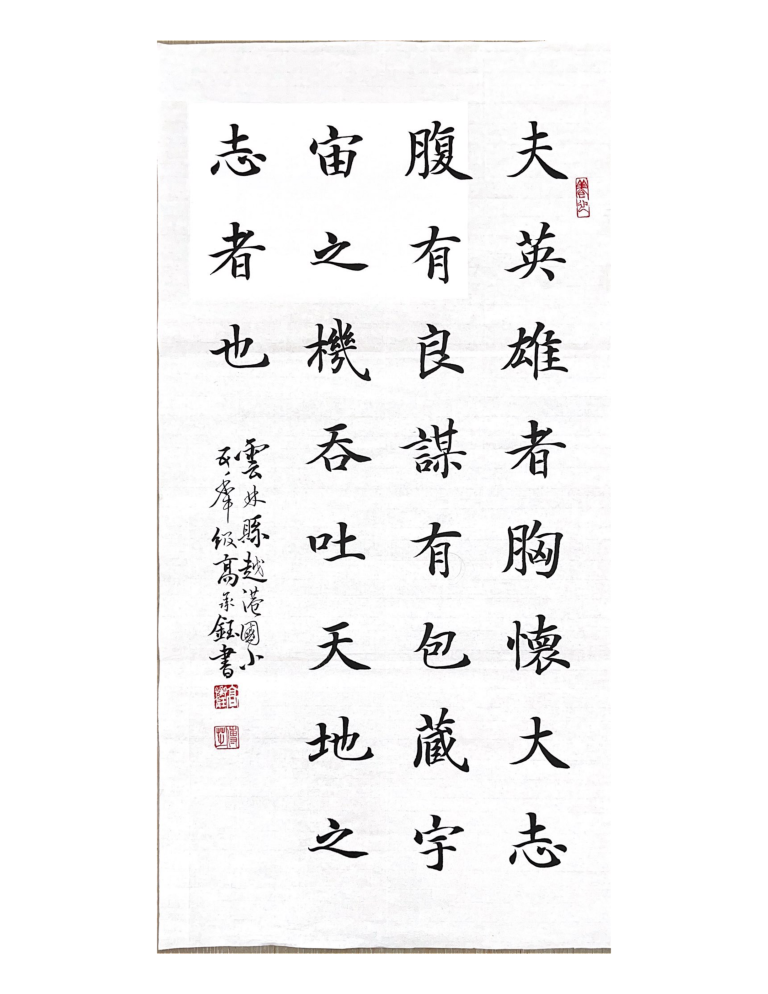 夫英雄者胸懷大志
腹有良謀有包藏宇
宙之機吞吐天地之
志者也
雲林縣越港國小
五年級高承鈺書